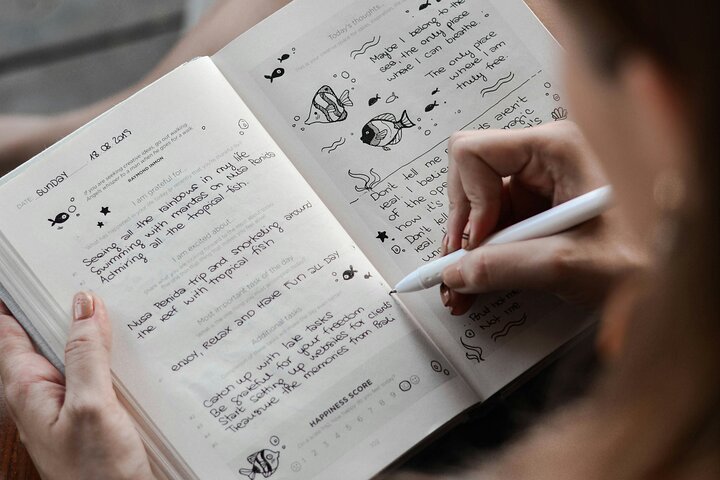 DATE SUNDAY 18.08.2019
If you are seeking creative ideas, go out walking.
Angels whisper to a man when he goes for a walk.
RAYMOND INMON
I am grateful for...
Seeing all the rainbows in my life
Swimming with mantas on Nusa Penida
Admiring all the tropical fish.
I am excited about...
Nusa Penida trip and snorkeling around
the reef with tropical fish
Most important task of the day
enjoy, Relax and Have fun all day
Additional tasks
Catch up with late tasks
Be grateful for your freedom
Start setting up websites for clients
Treasure the memories from Bali
HAPPINESS SCORE
1 2 3 4 5 6 7 8 9
102
Today's thoughts
Maybe I belong to the
sea, the only place
where I can breathe.
The only place
where I am
truly free
aren't
magic
Don't tell me
I believe
of the
how it's
Don't tell
words
But no
Not me